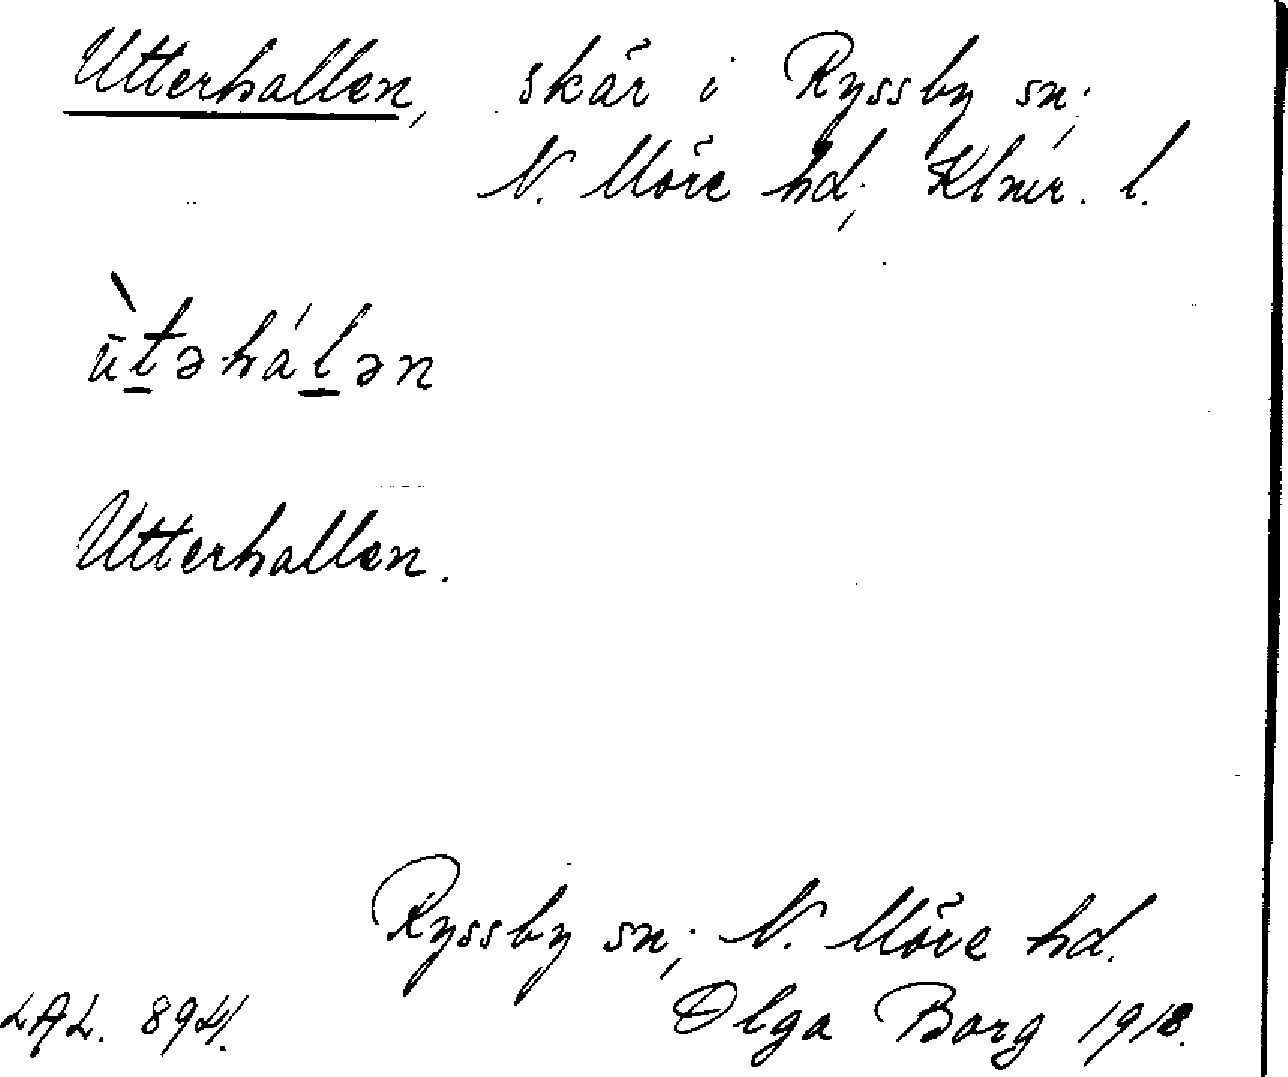 Utterhallen, skär i Ryssby sn;
N. Möre hd; Klmr. l.
ùt̲əhál̲ən
Utterhallen.
Ryssby sn; N. Möre hd.
Olga Borg 1918.
LAL. 894.